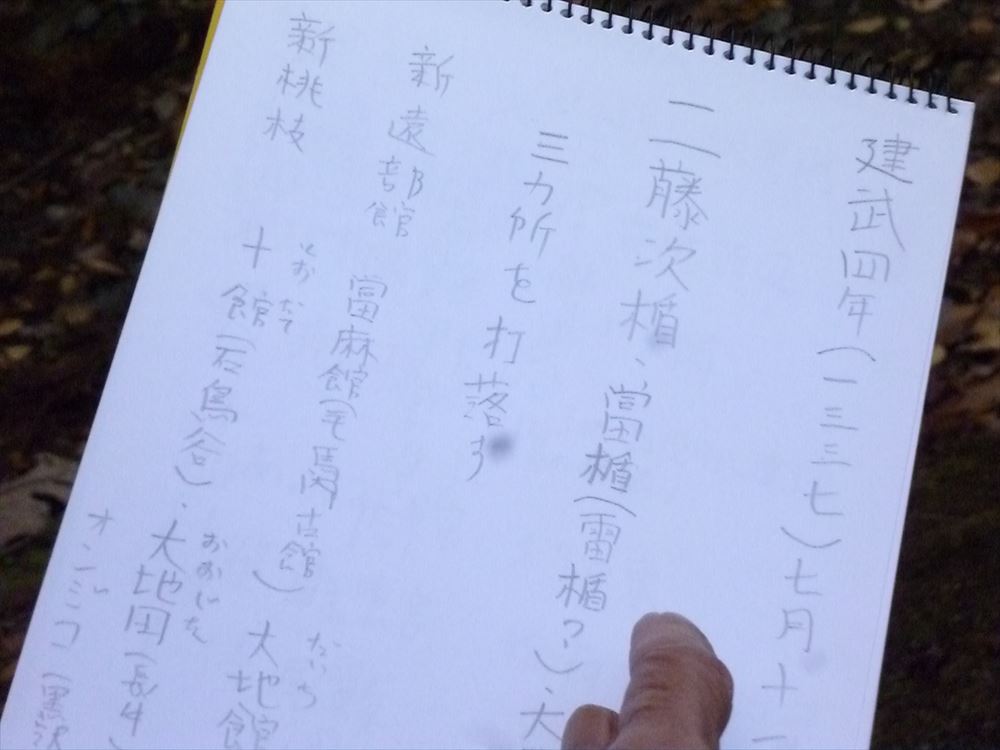 建武四年(一三三七)七月十一
二藤次楯、當楯(雷楯?)、大
三カ所を打落す
新遠部館 當麻館(毛馬内古館) 大地館
たいち
新桃枝 十館(石鳥谷)、大地田(長牛)
とおたて
おおじた
オンミコ(黒沢